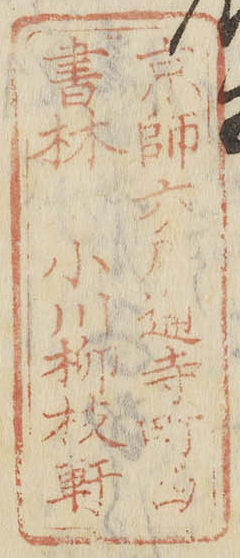 京師六角通寺町西
書林 小川柳枝軒